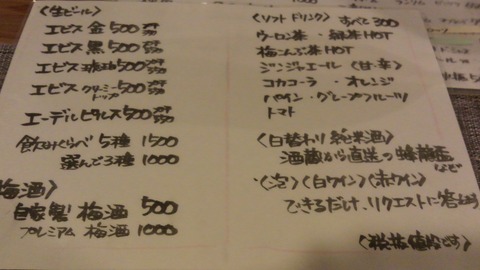 〈生ビール〉
エビス 金 500
エビス 黒 500
エビス 琥珀 500
エビス クリーミートップ 500
エーデルピルス 500
飲みくらべ 5種 1500
選んで3種 1000
梅酒〉
自家製 梅酒 500
プレミアム 梅酒 1000
〈ソフトドリンク〉すべて300
ウーロン茶・緑茶HOT
梅こんぶ茶HOT
ジンジャエール〈甘・辛〉
コカコーラ・オレンジ
パイン・グレープフルーツ
トマト
〈日替わり純米酒〉
酒蔵から直送の
など
〈泡〉〈白ワイン〉〈赤ワイン〉
できるだけ、リクエストに答えます
〈税抜値段です〉